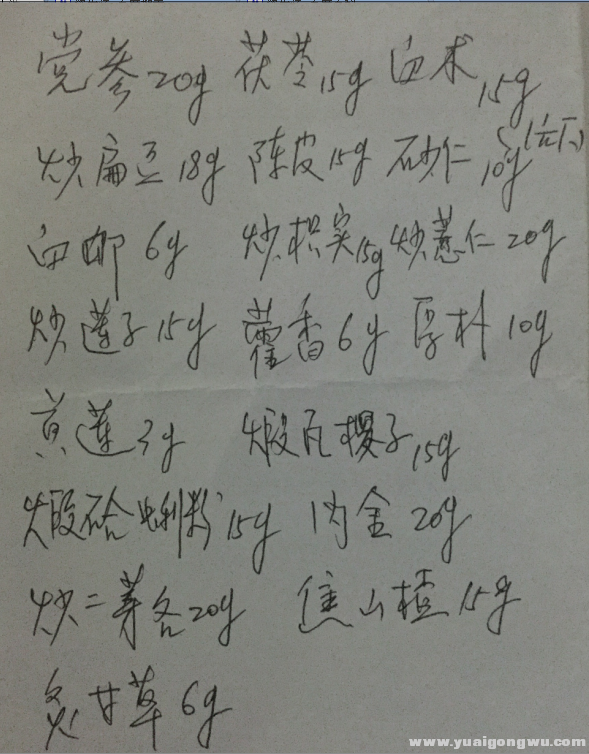 党参20g 茯苓15g 白术15g
炒扁豆18g 陈皮15g 砂仁10g(后下)
白叩6g 炒枳实15g 炒薏仁20g
炒莲子15g 藿香6g 厚朴10g
黄莲3g 煅瓦楞子15g
煅蛤蜊粉15g 内金20g
炒二芽各20g 焦山楂15g
炙甘草6g
www.yuaigongwu.com